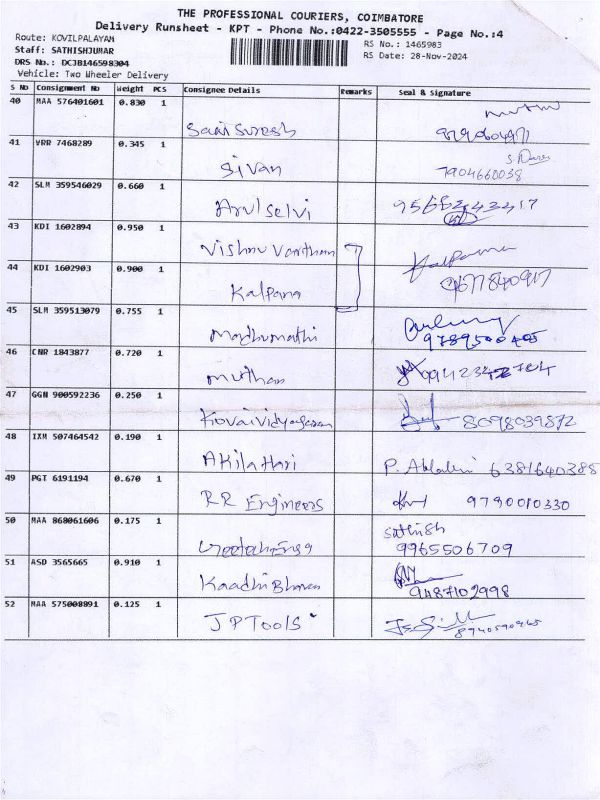 THE PROFESSIONAL COURIERS, COIMBATORE
Delivery Runsheet - KPT - Phone No.:0422-3505555 - Page No.:4
Route: KOVILPALAYAM
RS No.: 1465983
Staff: SATHISHJUMAR
RS Date: 28-Nov-2024
DRS No.: DCJB146598304
Vehicle: Two Wheeler Delivery
S No Consignment No Weight PCS Consignee Details Remarks Seal & Signature
40 MAA 576401601 0.830 1
Sai Suresh
41 VRR 7468289 0.345 1
Sivan 7904660038
42 SLM 359546029 0.660 1
Arulselvi
43 KDI 1602894 0.950 1
Vishnu Vartham
44 KDI 1602903 0.900 1 Kalpana
Kalpana
45 SLM 359513079 0.755 1
Madhumathi
46 CNR 1843877 0.720 1
47 GGN 900592236 0.250 1
8098039872
48 IXM 507464542 0.190 1
Akila Hari 6381640385
49 PGT 6191194 0.670 1
RR Engineers 9790010330
50 MAA 868061606 0.175 1
Sathish
9965506709
51 ASD 3565665 0.910 1
Kaadhi Bhavan 9487102998
52 MAA 575008891 0.125 1
JP Tools